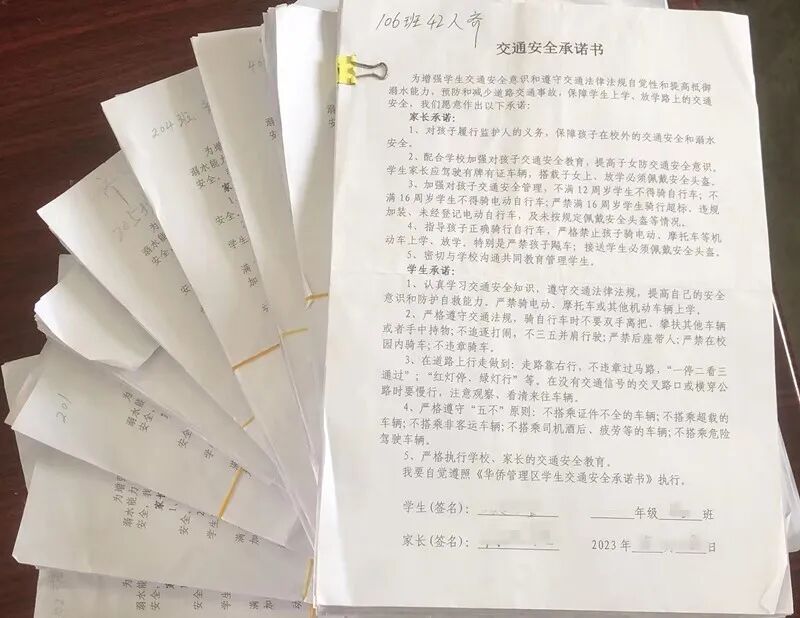 106班42人齐
交通安全承诺书
为增强学生交通安全意识和遵守交通法律法规自觉性和提高抵御
溺水能力，预防和减少道路交通事故，保障学生上学、放学路上的交通
安全，我们愿意作出以下承诺：
家长承诺：
1、对孩子履行监护人的义务，保障孩子在校外的交通安全和溺水
安全。
2、配合学校加强对孩子交通安全教育，提高子女防交通安全意识。
学生家长应驾驶有牌有证车辆，搭载子女上、放学必须佩戴安全头盔。
3、加强对孩子交通安全管理，不满12周岁学生不得骑自行车，不
满16周岁学生不得骑电动自行车；严禁满16周岁学生骑行超标、违规
加装、未经登记电动自行车，及未按规定佩戴安全头盔等情况。
4、指导孩子正确骑行自行车，严格禁止孩子骑电动、摩托车等机
动车上学、放学，特别是严禁孩子飚车；接送学生必须佩戴安全头盔。
5、密切与学校沟通共同教育管理学生。
学生承诺：
1、认真学习交通安全知识，遵守交通法律法规，提高自己的安全
意识和防护自救能力。严禁骑电动、摩托车或其他机动车辆上学。
2、严格遵守交通法规，骑自行车时不要双手离把、攀扶其他车辆
或者手中持物；不追逐打闹，不三五并肩行驶；严禁后座带人；严禁在校
园内骑车；不违章骑车。
3、在道路上行走做到：走路靠右行，不违章过马路，“一停二看三
通过”；“红灯停、绿灯行”等。在没有交通信号的交叉路口或横穿公
路时要慢行，注意观察、看清来往车辆。
4、严格遵守“五不”原则：不搭乘证件不全的车辆；不搭乘超载的
车辆；不搭乘非客运车辆；不搭乘司机酒后、疲劳等的车辆；不搭乘危险
驾驶车辆。
5、严格执行学校、家长的交通安全教育。
我要自觉遵照《华侨管理区学生交通安全承诺书》执行。
学生(签名)：
年级 班
家长(签名)：
2023年 日
204班
为
溺水能
安全，
201
为增
溺水能力
安全，我
家长
1、